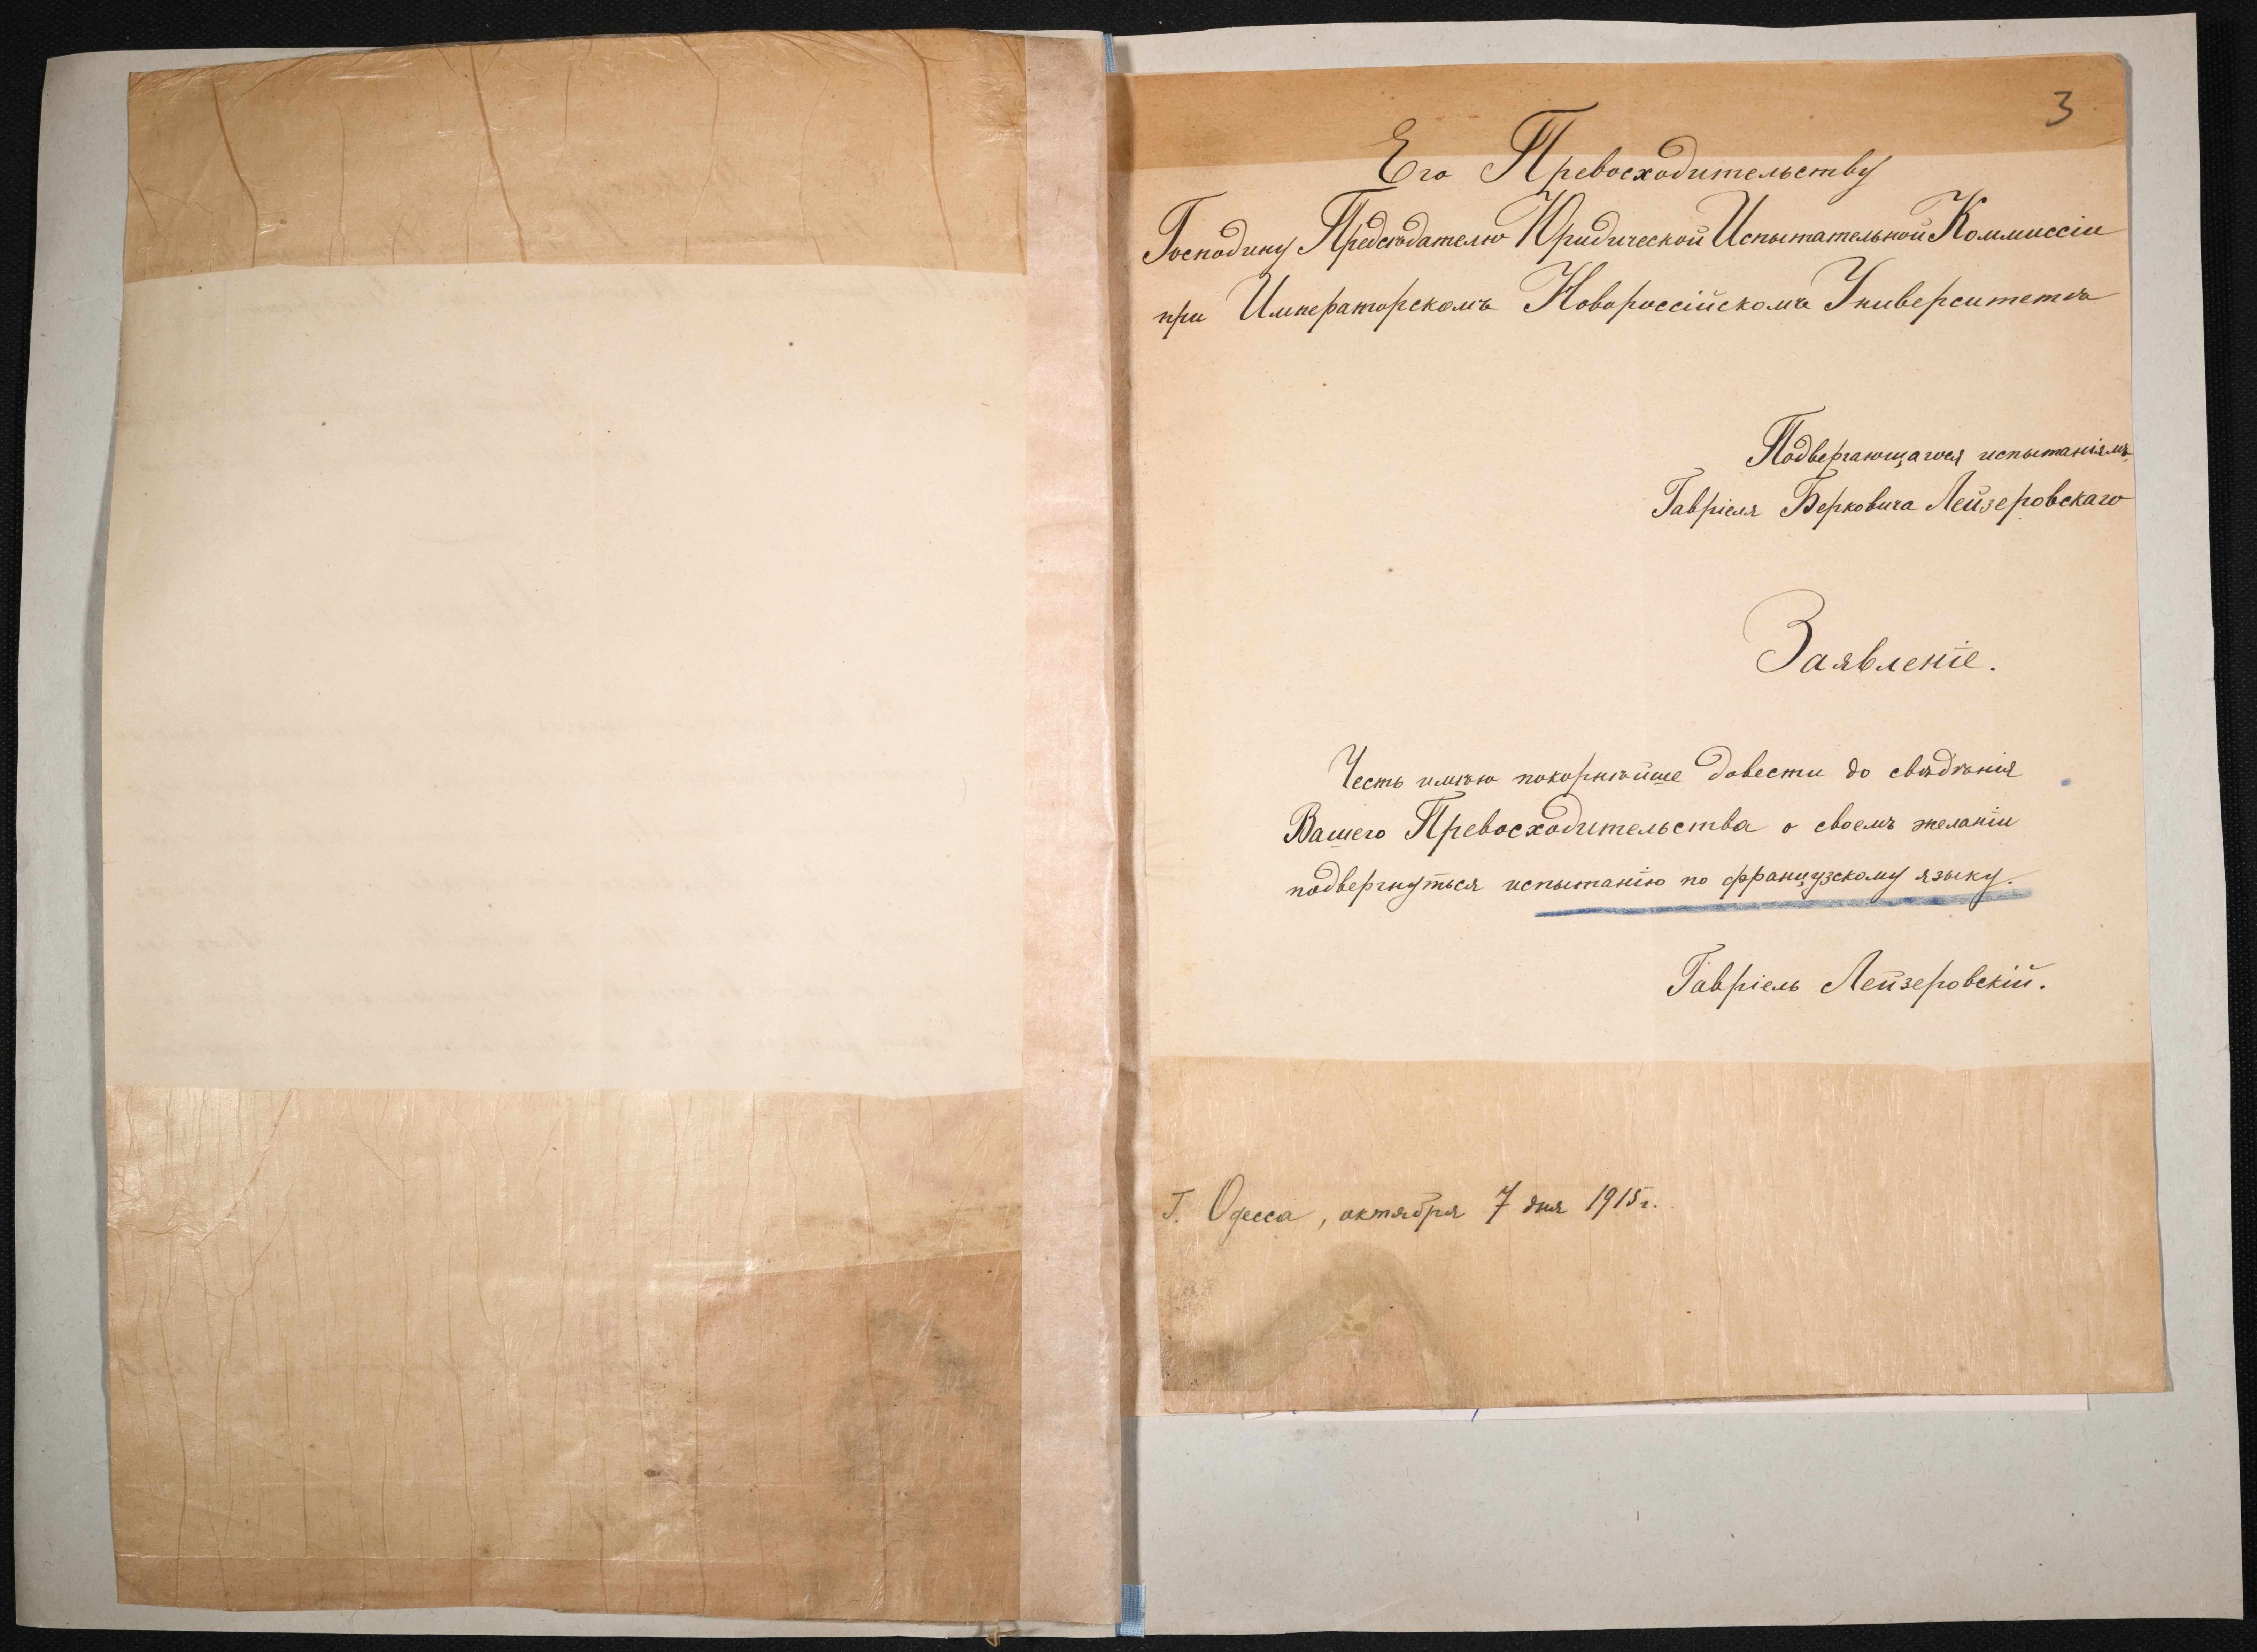 3
Его Превосходительству
Господину Председателю Юридической Испытательной Коммиссіи
при Императорскомъ Новороссійскомъ Университетѣ
Подвергающагося испытаніямъ
Гавріеля Берковича Лейзеровскаго
Заявленіе.
Честь имѣю покорнѣйше довести до свѣдѣнія
Вашего Превосходительства о своемъ желаніи
подвергнуться испытанію по французскому языку.
Гавріель Лейзеровскій.
Г. Одесса, октября 7 дня 1915 г.